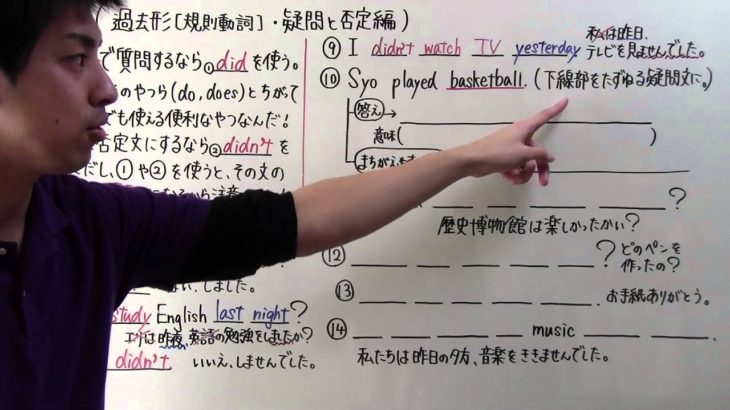 過去形〔規則動詞〕・疑問と否定編)
で質問するなら①didを使う。
のやつら(do, does)とちがって
でも使える便利なやつなんだ!
否定文にするなら②didn'tを
だし、①や②を使うと、その文の
study English last night?
エリは昨夜、英語の勉強をしましたか?
didn't いいえ、しませんでした。
⑨ I didn't watch TV yesterday 私は昨日、
テレビを見ませんでした。
⑩ Syo played basketball. (下線部をたずねる疑問文に。)
答え→
意味( )
?
歴史博物館は楽しかったかい?
⑫ ? どのペンを
作ったの?
⑬ . お手紙ありがとう。
⑭ music .
私たちは昨日の夕方、音楽をききませんでした。